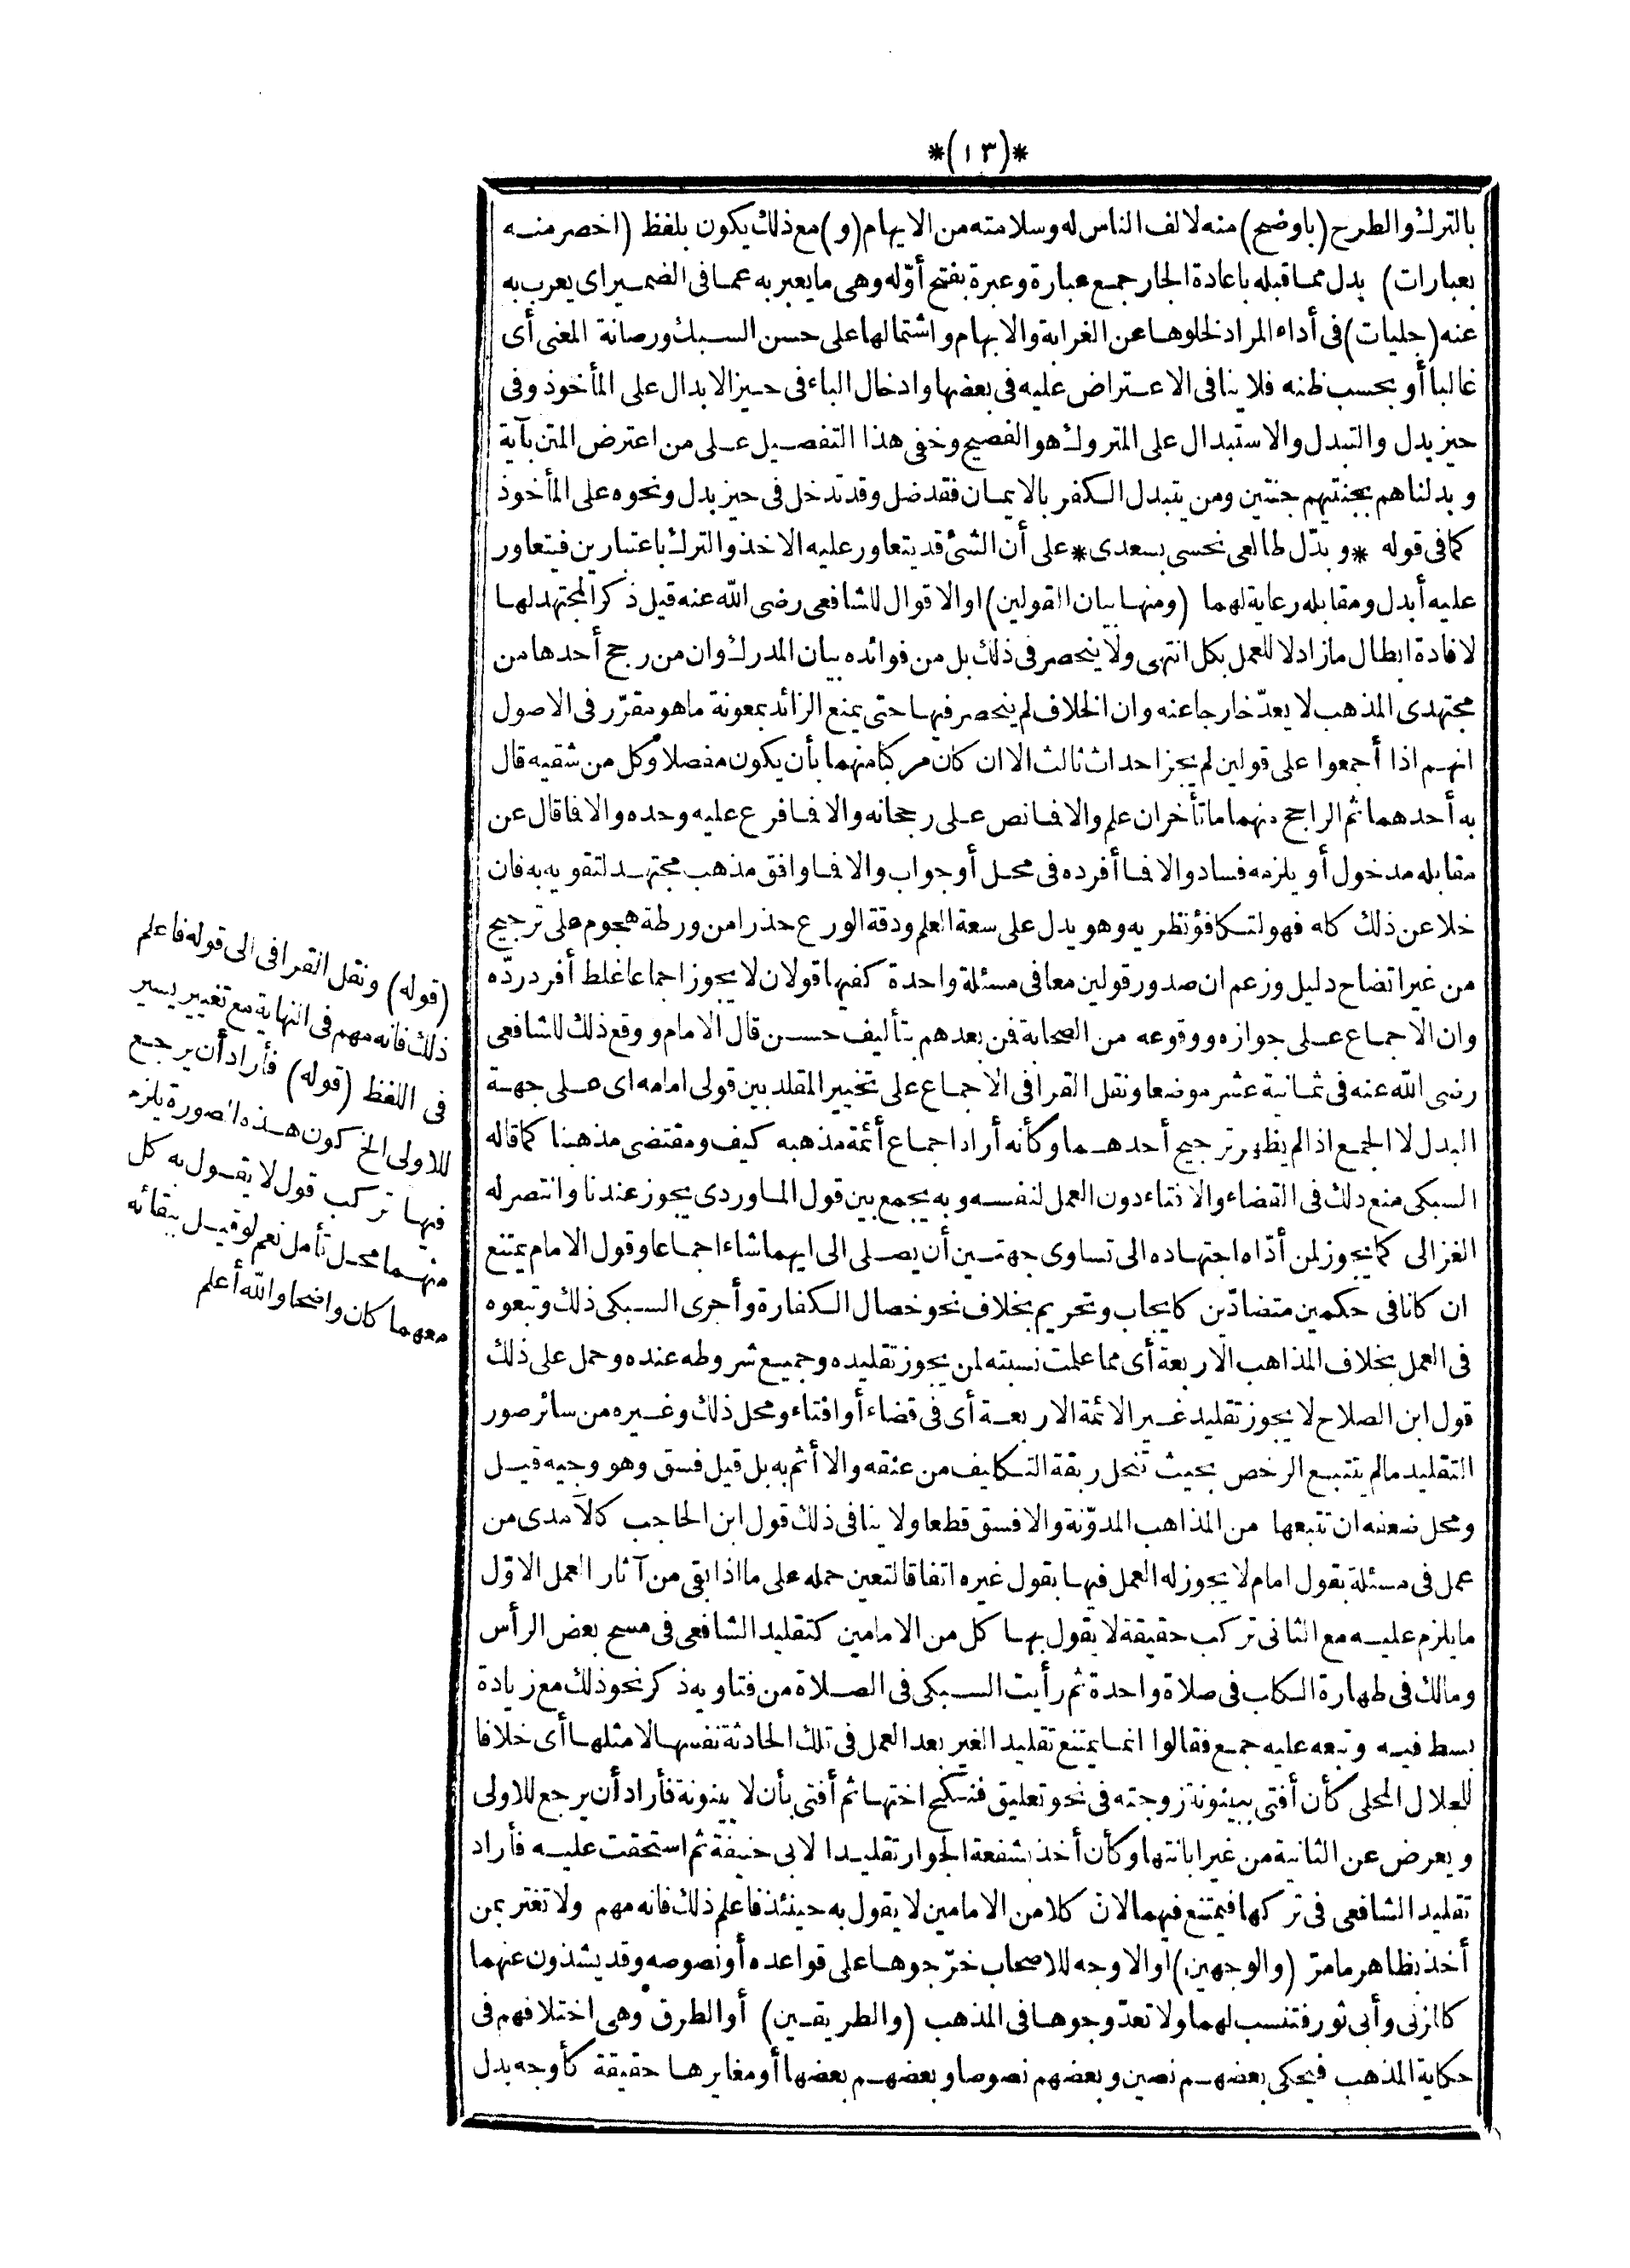 *(١٣)*
بالترك والطرح (باوضح) منه لالف الناس له وسلامته من الايهام (و) مع ذلك يكون بلفظ (اخصر منه
بعبارات) بدل مما قبله باعادة الجار جمع عبارة وعبرة بفتح أوّله وهى ما يعبر به عما فى الضمير اى يعرب به
عنه (جليات) فى أداء المراد لخلوها عن الغرابة والابهام واشتمالها على حسن السبك ورصانة المعنى أى
غالبا أو بحسب ظنه فلا ينافى الاعتراض عليه فى بعضها وادخال الباء فى حيز الابدال على المأخوذ وفى
حيز بدل والتبدل والاستبدال على المتروك هو الفصيح وخفى هذا التفصيل على من اعترض المتن بآية
وبدلناهم بجنتيهم جنتين ومن يتبدل الكفر بالايمان فقد ضل وقد تدخل فى حيز بدل ونحوه على المأخوذ
كما فى قوله *وبدّل طالعى نحسى بسعدى* على أن الشئ قد يتعاور عليه الاخذ والترك باعتبارين فيتعاور
عليه أبدل ومقابله رعاية لهما (ومنها بيان القولين) او الاقوال للشافعى رضى الله عنه قيل ذكر المجتهد لها
لافادة ابطال ما زاد لا للعمل بكل انتهى ولا ينحصر فى ذلك بل من فوائده بيان المدرك وان من رجح أحدها من
مجتهدى المذهب لا يعدّ خارجا عنه وان الخلاف لم ينحصر فيها حتى يمنع الزائد بمعونة ما هو مقرّر فى الاصول
انهم اذا أجمعوا على قولين لم يجز احداث ثالث الا ان كان مركبا منهما بأن يكون مفصلا وكل من شقيه قال
به أحدهما ثم الراجح منهما ما تأخر ان علم والا فما نص على رجحانه والا فما فرع عليه وحده والا فما قال عن
مقابله مدخول أو يلزمه فساد والا فما أفرده فى محل أو جواب والا فما وافق مذهب مجتهد لتقويه به فان
خلا عن ذلك كله فهو لتكافؤ نظريه وهو يدل على سعة العلم ودقة الورع حذرا من ورطة هجوم على ترجيح
من غير اتضاح دليل وزعم ان صدور قولين معا فى مسئلة واحدة كفيها قولان لا يجوز اجماعا غلط أفرد ردّه
وان الاجماع على جوازه ووقوعه من الصحابة فمن بعدهم بتأليف حسن قال الامام ووقع ذلك للشافعى
رضى الله عنه فى ثمانية عشر موضعا ونقل القرافى الاجماع على تخيير المقلد بين قولى امامه اى على جهة
البدل لا الجمع اذا لم يظهر ترجيح أحدهما وكأنه أراد اجماع أئمة مذهبه كيف ومقتضى مذهبنا كما قاله
السبكى منع ذلك فى القضاء والافتاء دون العمل لنفسه وبه يجمع بين قول الماوردى يجوز عندنا وانتصر له
الغزالى كما يجوز لمن أدّاه اجتهاده الى تساوى جهتين أن يصلى الى ايهما شاء اجماعا وقول الامام يمتنع
ان كانا فى حكمين متضادّين كايجاب وتحريم بخلاف نحو خصال الكفارة وأجرى السبكى ذلك وتبعوه
فى العمل بخلاف المذاهب الاربعة أى مما علمت نسبته لمن يجوز تقليده وجميع شروطه عنده وحمل على ذلك
قول ابن الصلاح لا يجوز تقليد غير الائمة الاربعة أى فى قضاء أو افتاء ومحل ذلك وغيره من سائر صور
التقليد ما لم يتتبع الرخص بحيث تنحل ربقة التكليف من عنقه والا أثم به بل قيل فسق وهو وجيه قيل
ومحل ضعفه ان تتبعها من المذاهب المدوّنة والا فسق قطعا ولا ينافى ذلك قول ابن الحاجب كالآمدى من
عمل فى مسئلة بقول امام لا يجوز له العمل فيها بقول غيره اتفاقا لتعين حمله على ما اذا بقى من آثار العمل الاوّل
ما يلزم عليه مع الثانى تركب حقيقة لا يقول بها كل من الامامين كتقليد الشافعى فى مسح بعض الرأس
ومالك فى طهارة الكلب فى صلاة واحدة ثم رأيت السبكى فى الصلاة من فتاويه ذكر نحو ذلك مع زيادة
بسط فيه وتبعه عليه جمع فقالوا انما يمتنع تقليد الغير بعد العمل فى تلك الحادثة نفسها لا مثلها أى خلافا
للجلال المحلى كأن أفتى ببينونة زوجته فى نحو تعليق فنكح اختها ثم أفتى بأن لا بينونة فأراد أن يرجع للاولى
ويعرض عن الثانية من غير ابانتها وكأن أخذ بشفعة الجوار تقليدا لابى حنيفة ثم استحقت عليه فأراد
تقليد الشافعى فى تركها فيمتنع فيهما لان كلا من الامامين لا يقول به حينئذ فاعلم ذلك فانه مهم ولا تغتر بمن
أخذ بظاهر ما مرّ (والوجهين) او الاوجه للاصحاب خرّجوها على قواعده أو نصوصه وقد يشذون عنهما
كالمزنى وأبى ثور فتنسب لهما ولا تعدّ وجوها فى المذهب (والطريقين) أو الطرق وهى اختلافهم فى
حكاية المذهب فيحكى بعضهم نصين وبعضهم نصوصا وبعضهم بعضها أو مغايرها حقيقة كأوجه بدل
(قوله) ونقل القرافى الى قوله فاعلم
ذلك فانه مهم فى النهاية مع تغيير يسير
فى اللفظ (قوله) فأراد أن يرجع
للاولى الخ كون هذه الصورة يلزم
فيها تركب قول لا يقول به كل
منهما محل تأمل نعم لو قيل ببقائه
معهما كان واضحا والله أعلم